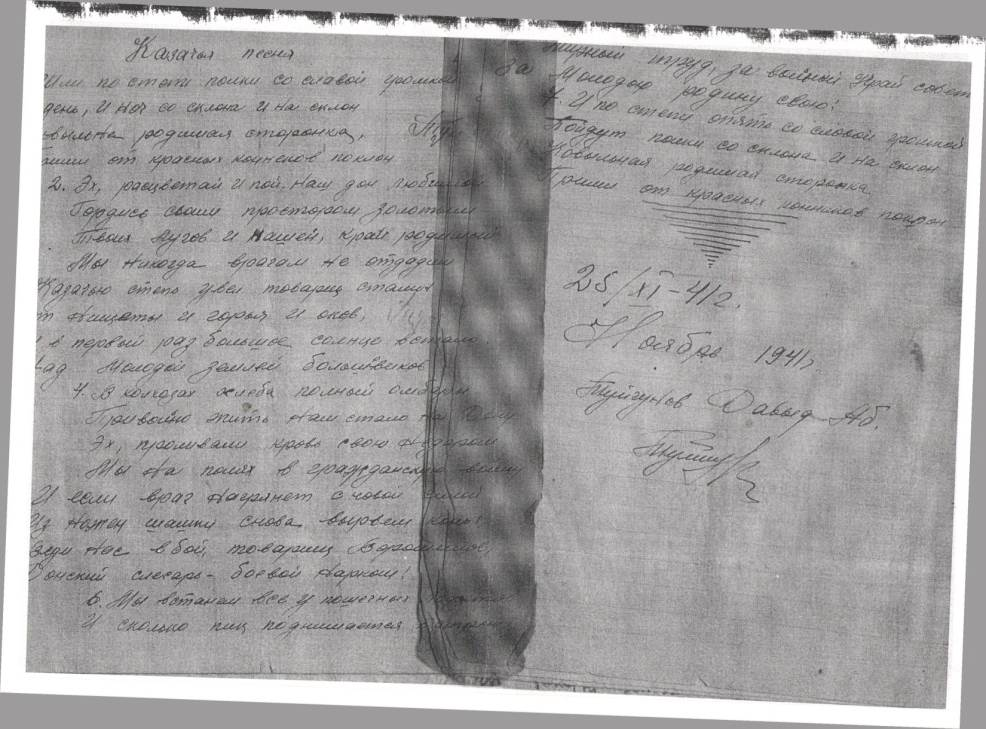 Казачья песня
Шли по степи полки со славой громкой
день, и ноч со склона и на склон
родимая сторонка,
от красных конников поклон
2. Эх, расцветай и пой, наш дон любимой
Гордись своим простором золотым
Твоих лугов и нашей, край родимый
Мы никогда врагам не отдадим
Казачью степь увел товарищ сталин
нищеты и горья и оков,
в первый раз большое солнце встало
над молодой землей большевиков
4. В колхозах хлеба полный амбары
Привольно жить нам стало на Дону
Эх, проливали кровь свою недаром
Мы на полях в гражданскую войну
И если враг нагрянет с новой силой
Из ножен шашки снова вырвем
веди нас в бой, товарищ Ворошилов,
Донский слесарь - боевой нарком!
6. Мы встанем все у
И сколько лиц поднимается
За мирный труд, за вольный край совет
Молодою родину свою!
7. И по степи опять со славой громкой
Пойдут полки со склона и на склон
Ковыльная родимая сторонка
Прими от красных конников поклон
25/XI-41г.
Ноябрь 1941г
Давыд Аб.